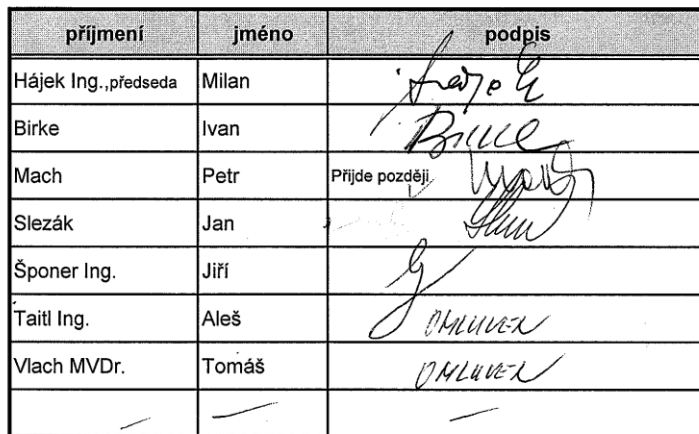 příjmení jméno podpis
Hájek Ing.,předseda Milan Hájek
Birke Ivan Birke
Mach Petr Přijde později Mach
Slezák Jan
Šponer Ing. Jiří
Taitl Ing. Aleš OMLUVEN
Vlach MVDr. Tomáš OMLUVEN
— — —